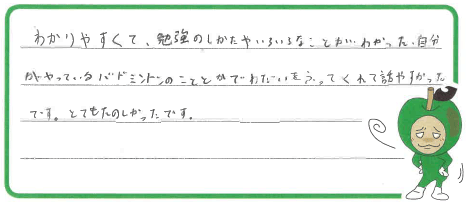 わかりやすくて、勉強のしかたやいろいろなことがわかった。自分
がやっているバドミントンのこととかでわだいをふってくれて話やすかった
です。とてもたのしかったです。